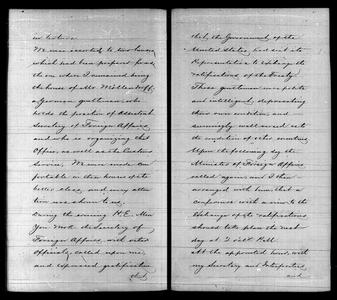 in
We were escorted to two houses
which had been prepared for us,
the one where I remained being
the house of Mr. Möllendorff,
a German gentleman, who
holds the position of
Secretary of Foreign Affairs,
and who is organizing that
Office, as well as the Customs
Service. We were made com-
fortable in these houses of the
better class, and every atten-
tion was shown to us.
During the evening H.E. Min
Yon Mok Secretary of
Foreign Affairs, with other
officials, called upon me,
and expressed gratification
that
that the Government of the
United States, had sent its
Representative to exchange the
ratifications of the Treaty.
These gentlemen were polite
and intelligent, deprecating
their own condition, and
seemingly well versed as to
the condition of other countries.
Upon the following day the
Minister of Foreign Affairs
called again, and I then
arranged with him, that a
conference with a view to the
Exchange of the ratifications
should take place the next
day at 2 o'clk P.M.
At the appointed hour, with
my Secretary and Interpreter,
and